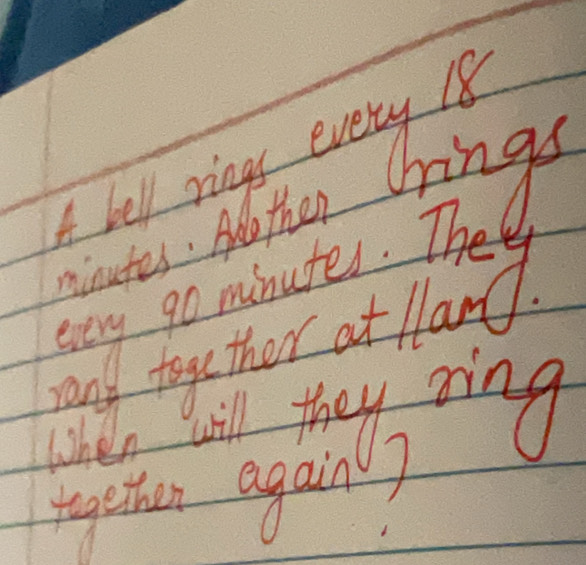 A bell rings every 18
minutes. Another rings
every 90 minutes. They
rang together at 11am.
When will they ring
together again?